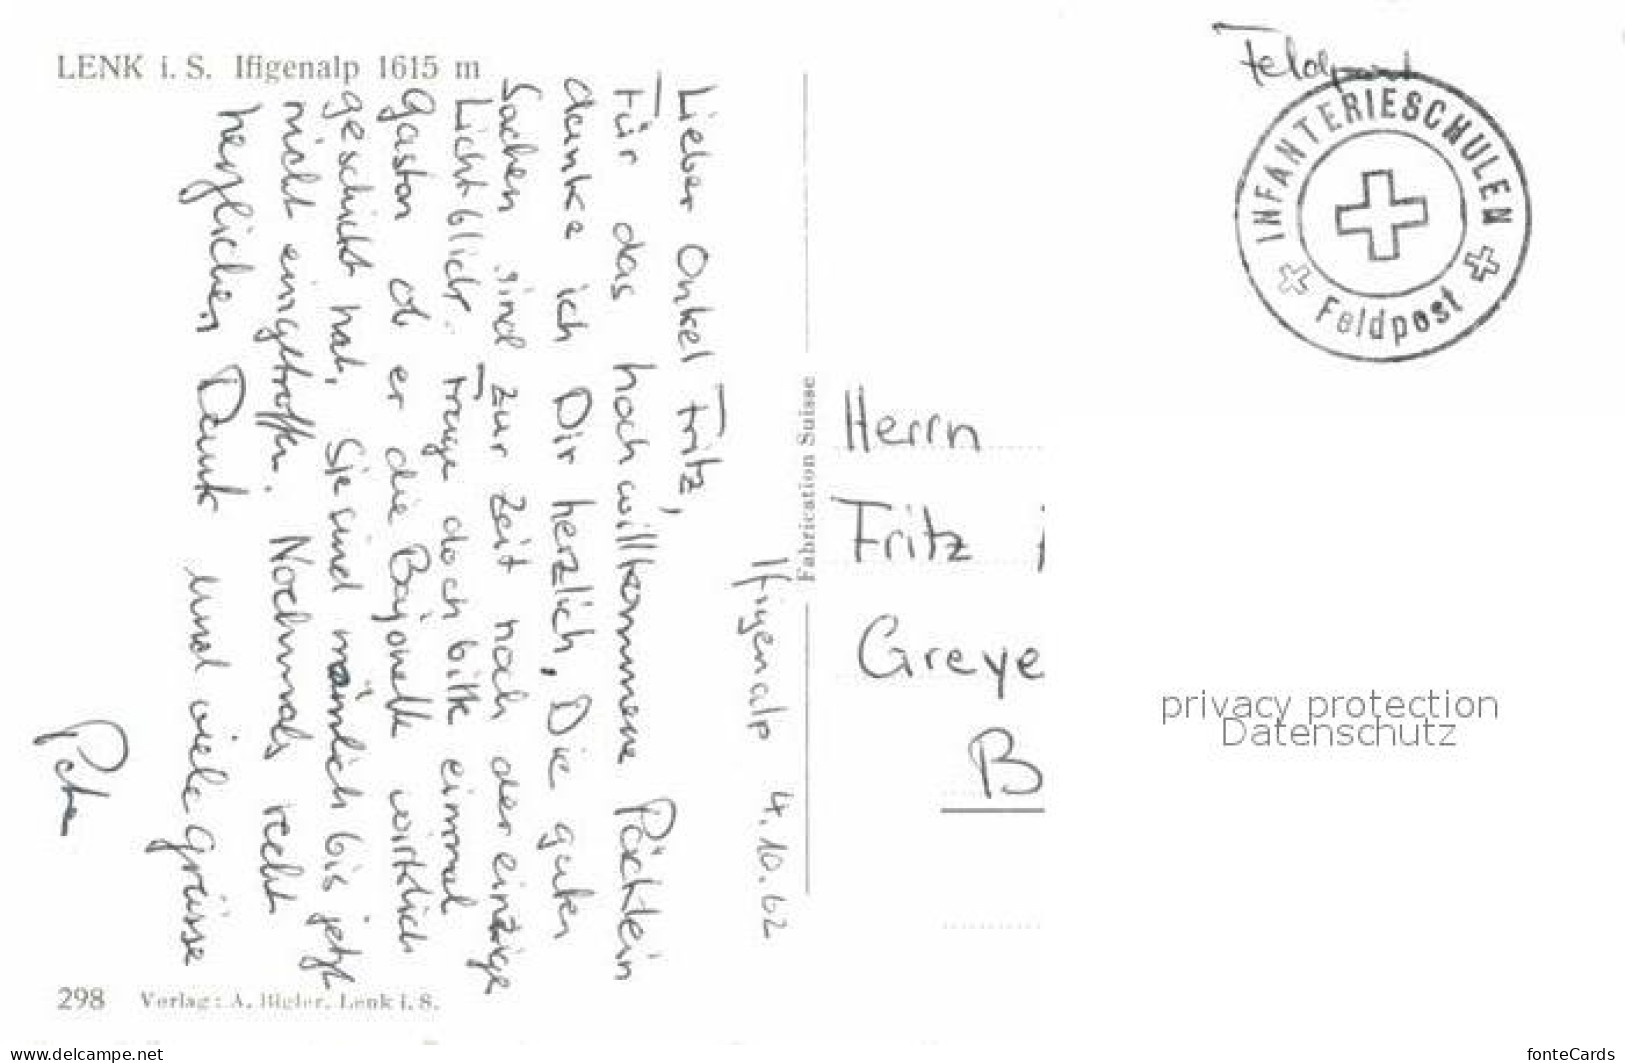 LENK i. S. Iffigenalp 1615 m
Iffigenalp 4.10.62
Lieber Onkel Fritz,
Für das hochwillkommene Päcklein
danke ich Dir herzlich, Die guten
Sachen sind zur Zeit noch der einzige
Lichtblick. Frage doch bitte einmal
Gaston ob er die Bajonette wirklich
geschickt hat, Sie sind nämlich bis jetzt
nicht eingetroffen. Nochmals recht
herzlichen Dank und viele Grüsse
Peter
298 Verlag: A. Bigler, Lenk i. S.
Fabrication Suisse
Feldpost
INFANTERIESCHULEN
Feldpost
Herrn
Fritz
Greye
B
privacy protection
Datenschutz
www.delcampe.net
fonteCards